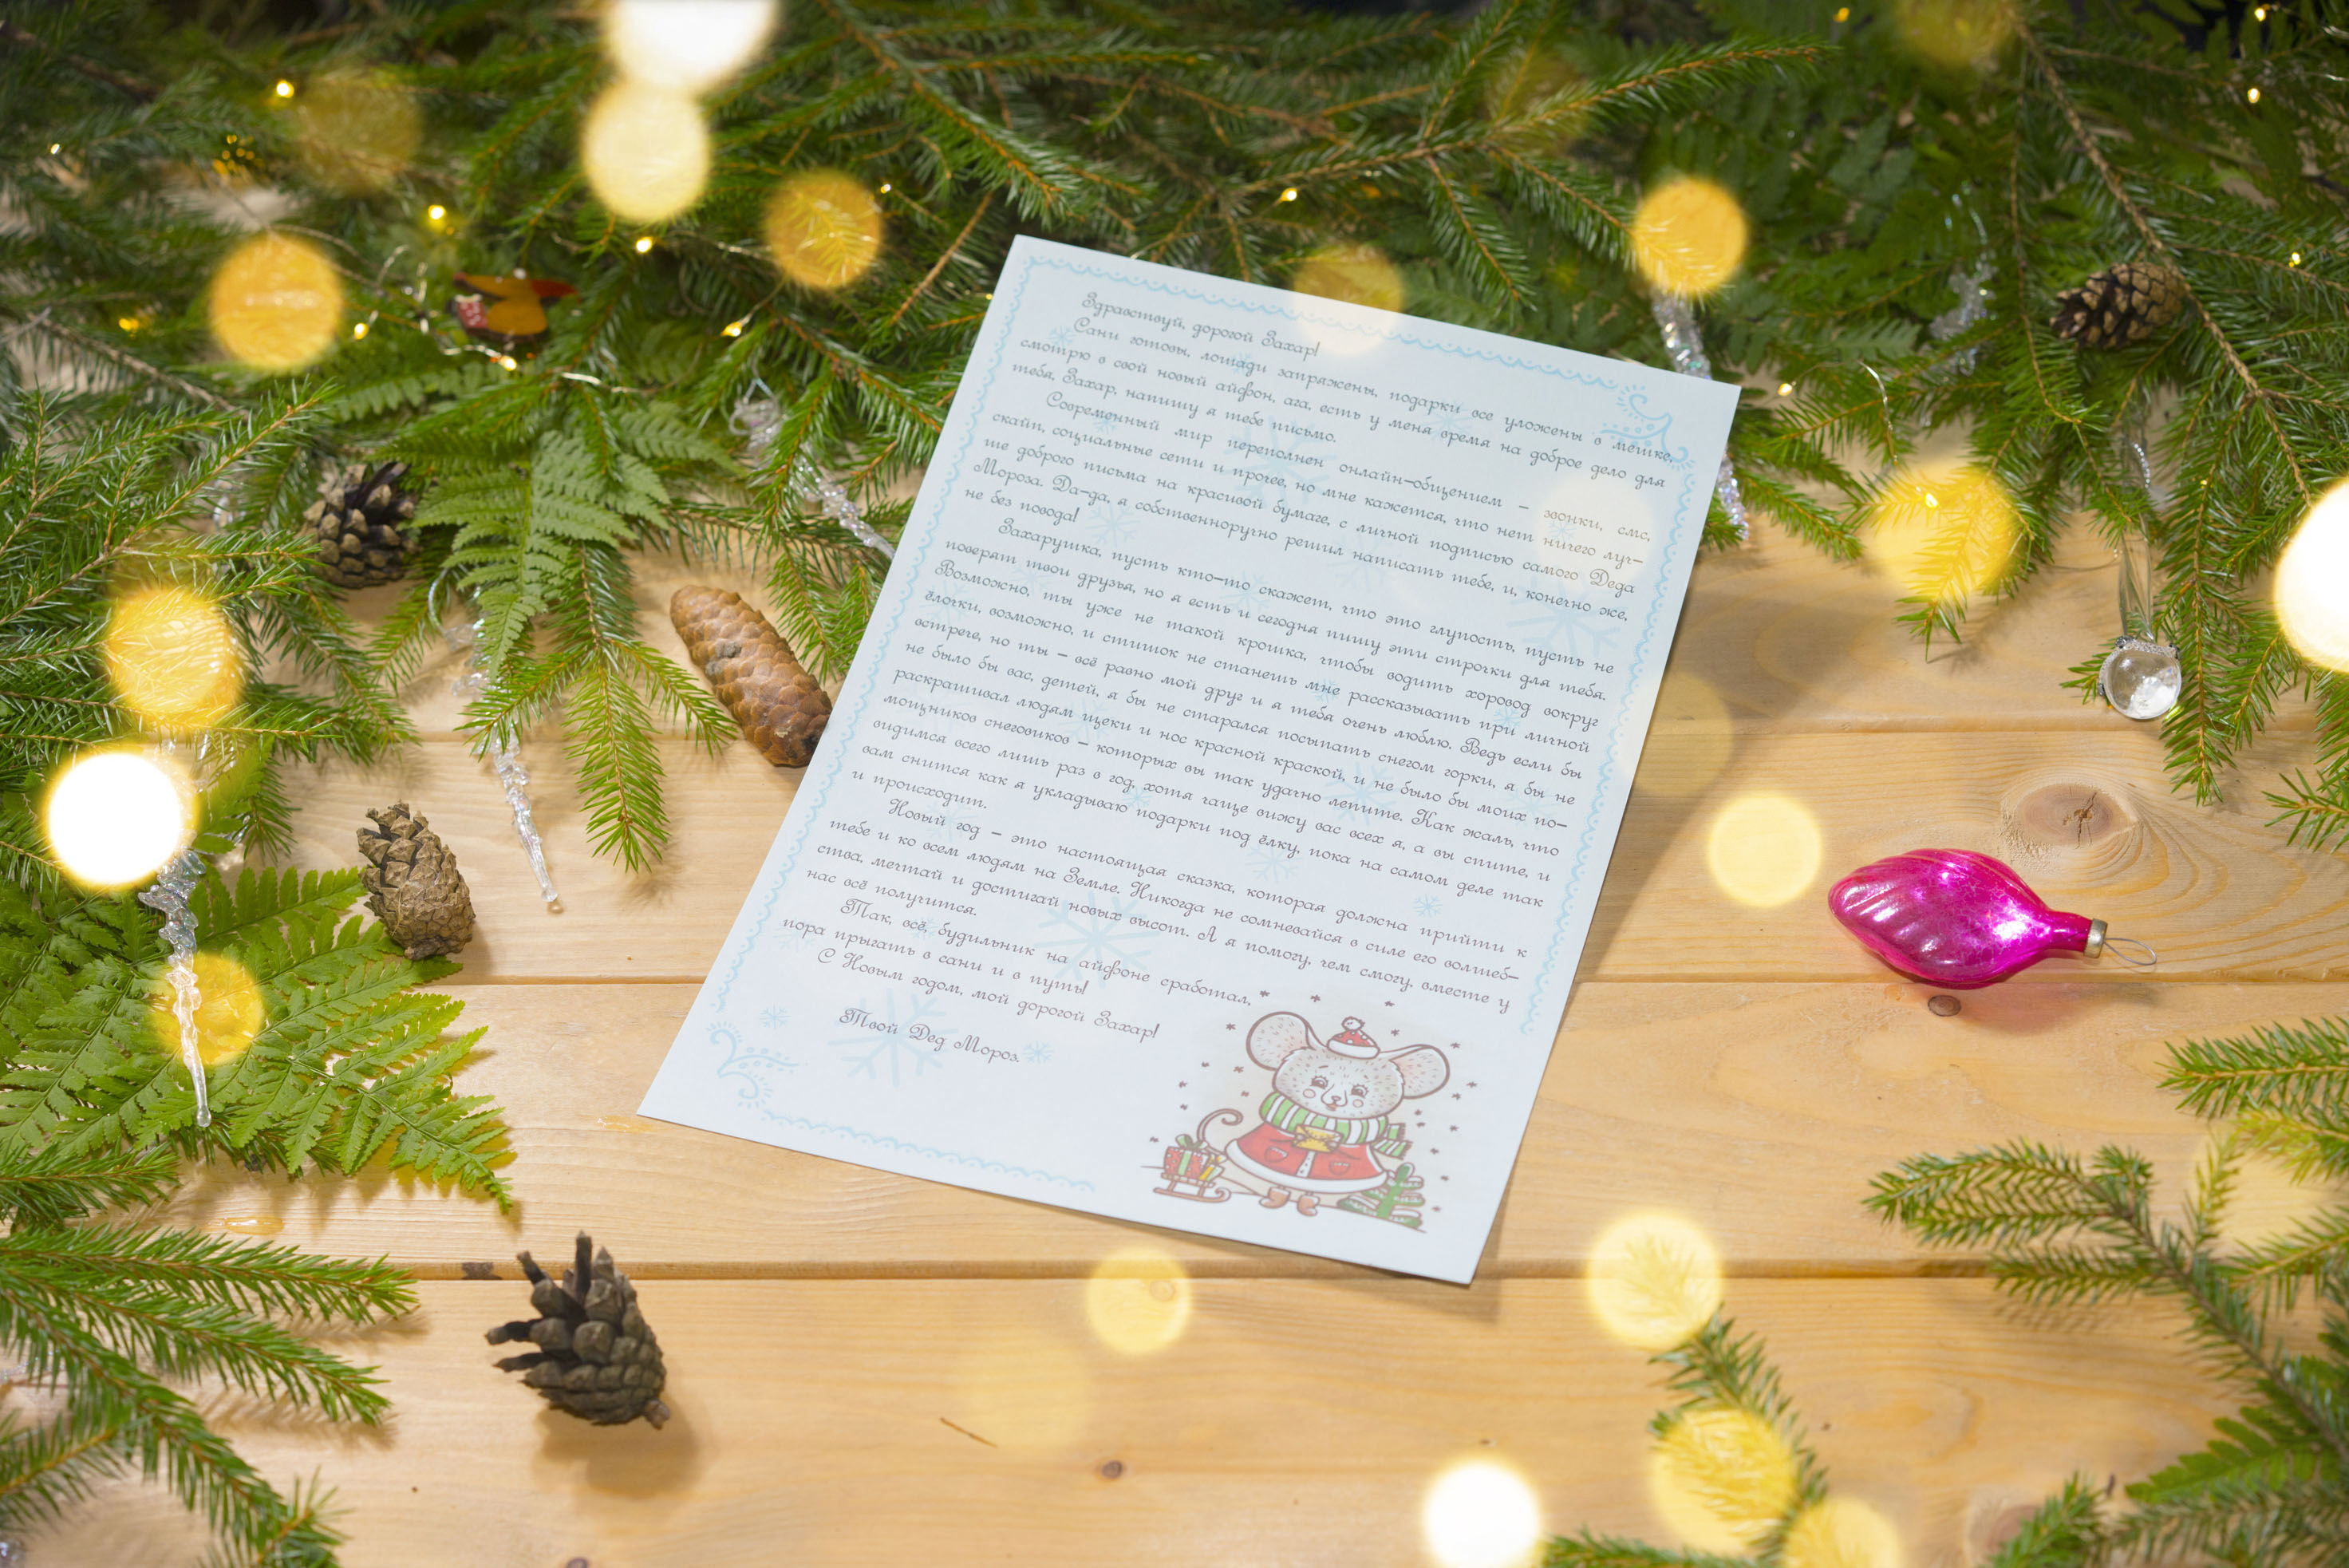 Здравствуй, дорогой Захар!
Сани готовы, лошади запряжены, подарки все уложены в мешке,
смотрю в свой новый айфон, ага, есть у меня время на доброе дело для
тебя, Захар, напишу я тебе письмо.
Современный мир переполнен онлайн-общением – звонки, смс,
скайп, социальные сети и прочее, но мне кажется, что нет ничего луч-
ше доброго письма на красивой бумаге, с личной подписью самого Деда
Мороза. Да-да, я собственноручно решил написать тебе, и, конечно же,
не без повода!
Захарушка, пусть кто-то скажет, что это глупость, пусть не
поверят твои друзья, но я есть и сегодня пишу эти строчки для тебя.
Возможно, ты уже не такой крошка, чтобы водить хоровод вокруг
ёлочки, возможно, и стишок не станешь мне рассказывать при личной
встрече, но ты – всё равно мой друг и я тебя очень люблю. Ведь если бы
не было бы вас, детей, я бы не старался посыпать снегом горки, я бы не
раскрашивал людям щеки и нос красной краской, и не было бы моих по-
мощников снеговиков – которых вы так удачно лепите. Как жаль, что
видимся всего лишь раз в год, хотя чаще вижу вас всех я, а вы спите, и
вам снится как я укладываю подарки под ёлку, пока на самом деле так
и происходит.
Новый год – это настоящая сказка, которая должна прийти к
тебе и ко всем людям на Земле. Никогда не сомневайся в силе его волшеб-
ства, мечтай и достигай новых высот. А я помогу, чем смогу, вместе у
нас всё получится.
Так, всё, будильник на айфоне сработал,
пора прыгать в сани и в путь!
С Новым годом, мой дорогой Захар!
Твой Дед Мороз.